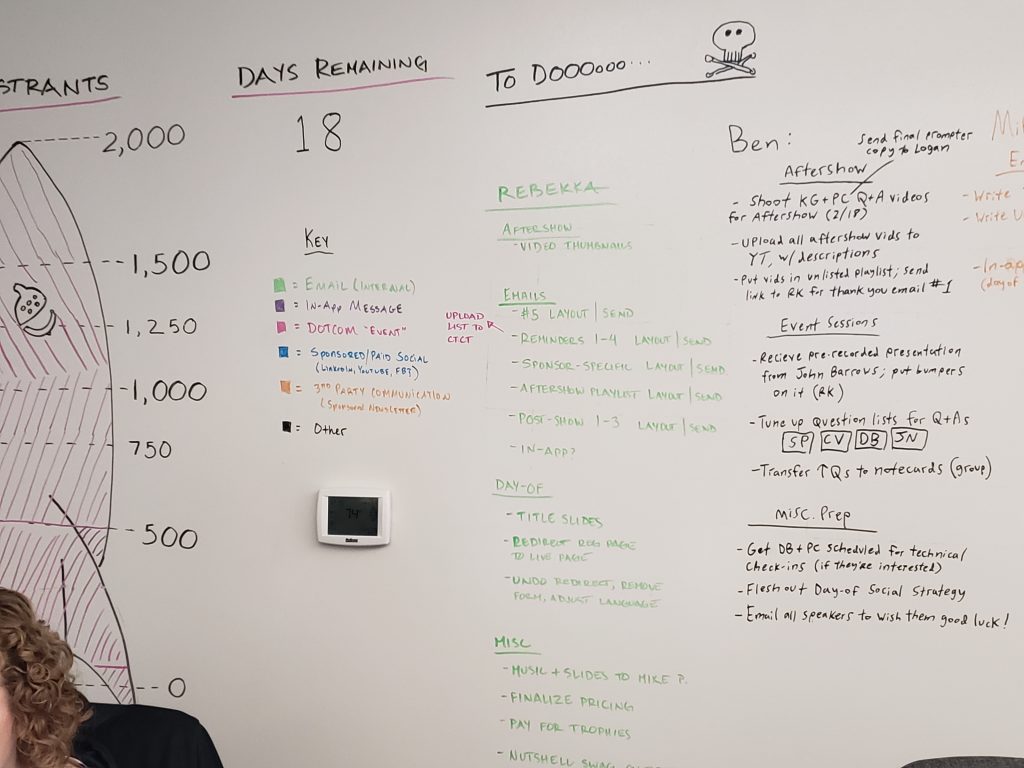 STRANTS
2,000
1,500
1,250
1,000
750
500
0
DAYS REMAINING
18
KEY
= EMAIL (INTERNAL)
= IN-APP MESSAGE
= DOTCOM "EVENT"
= SPONSORED/PAID SOCIAL
(LINKEDIN, YOUTUBE, FB?)
= 3RD PARTY COMMUNICATION
(SPONSORED NEWSLETTER)
= Other
74°
TO DOOOOOO...
REBEKKA
AFTERSHOW
- VIDEO THUMBNAILS
EMAILS
- #5 LAYOUT | SEND
UPLOAD
LIST TO
CTCT
- REMINDERS 1-4 LAYOUT | SEND
- SPONSOR-SPECIFIC LAYOUT | SEND
- AFTERSHOW PLAYLIST LAYOUT | SEND
- POST-SHOW 1-3 LAYOUT | SEND
- IN-APP?
DAY-OF
- TITLE SLIDES
- REDIRECT REG PAGE
TO LIVE PAGE
- UNDO REDIRECT, REMOVE
FORM, ADJUST LANGUAGE
MISC
- MUSIC + SLIDES TO MIKE P.
- FINALIZE PRICING
- PAY FOR TROPHIES
- NUTSHELL SWAG
Ben:
Send final prompter
copy to Logan
Aftershow
- Shoot KG+PC Q+A videos
for Aftershow (2/18)
- Upload all aftershow vids to
YT, w/descriptions
- Put vids in unlisted playlist; send
link to RK for thank you email #1
Event Sessions
- Recieve pre-recorded presentation
from John Barrows; put bumpers
on it (RK)
- Tune up question lists for Q+As
SP CV DB JN
- Transfer TQs to notecards (group)
Misc. Prep
- Get DB+PC scheduled for technical
Check-ins (if they're interested)
- Flesh out Day-of Social Strategy
- Email all speakers to wish them good luck!
Mi
E
- Write
- Write U
- In-ap
(day of